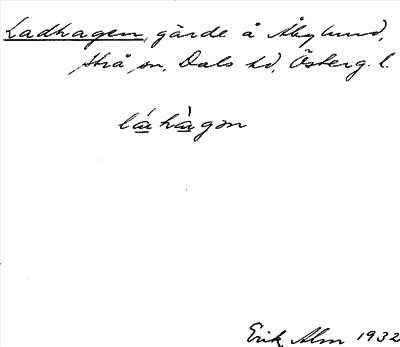 Ladhagen, gärde å Åbylund,
Strå sn, Dals hd, Österg. l.
lá̱hà̱gən
Erik Alm 1932